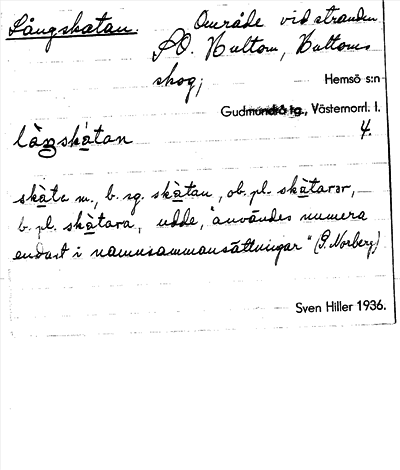 Långskatan. Område vid stranden
SO. Hultom, Hultoms
skog;
Hemsö s:n
Gudmundrå tg., Västernorrl. l.
4.
låŋskàtan
skàta m., b. sg. skàtan, ob. pl. skàtarər,
b. pl. skàtara, udde, "användes numera
endast i namnsammansättningar" (G. Norberg)
Sven Hiller 1936.